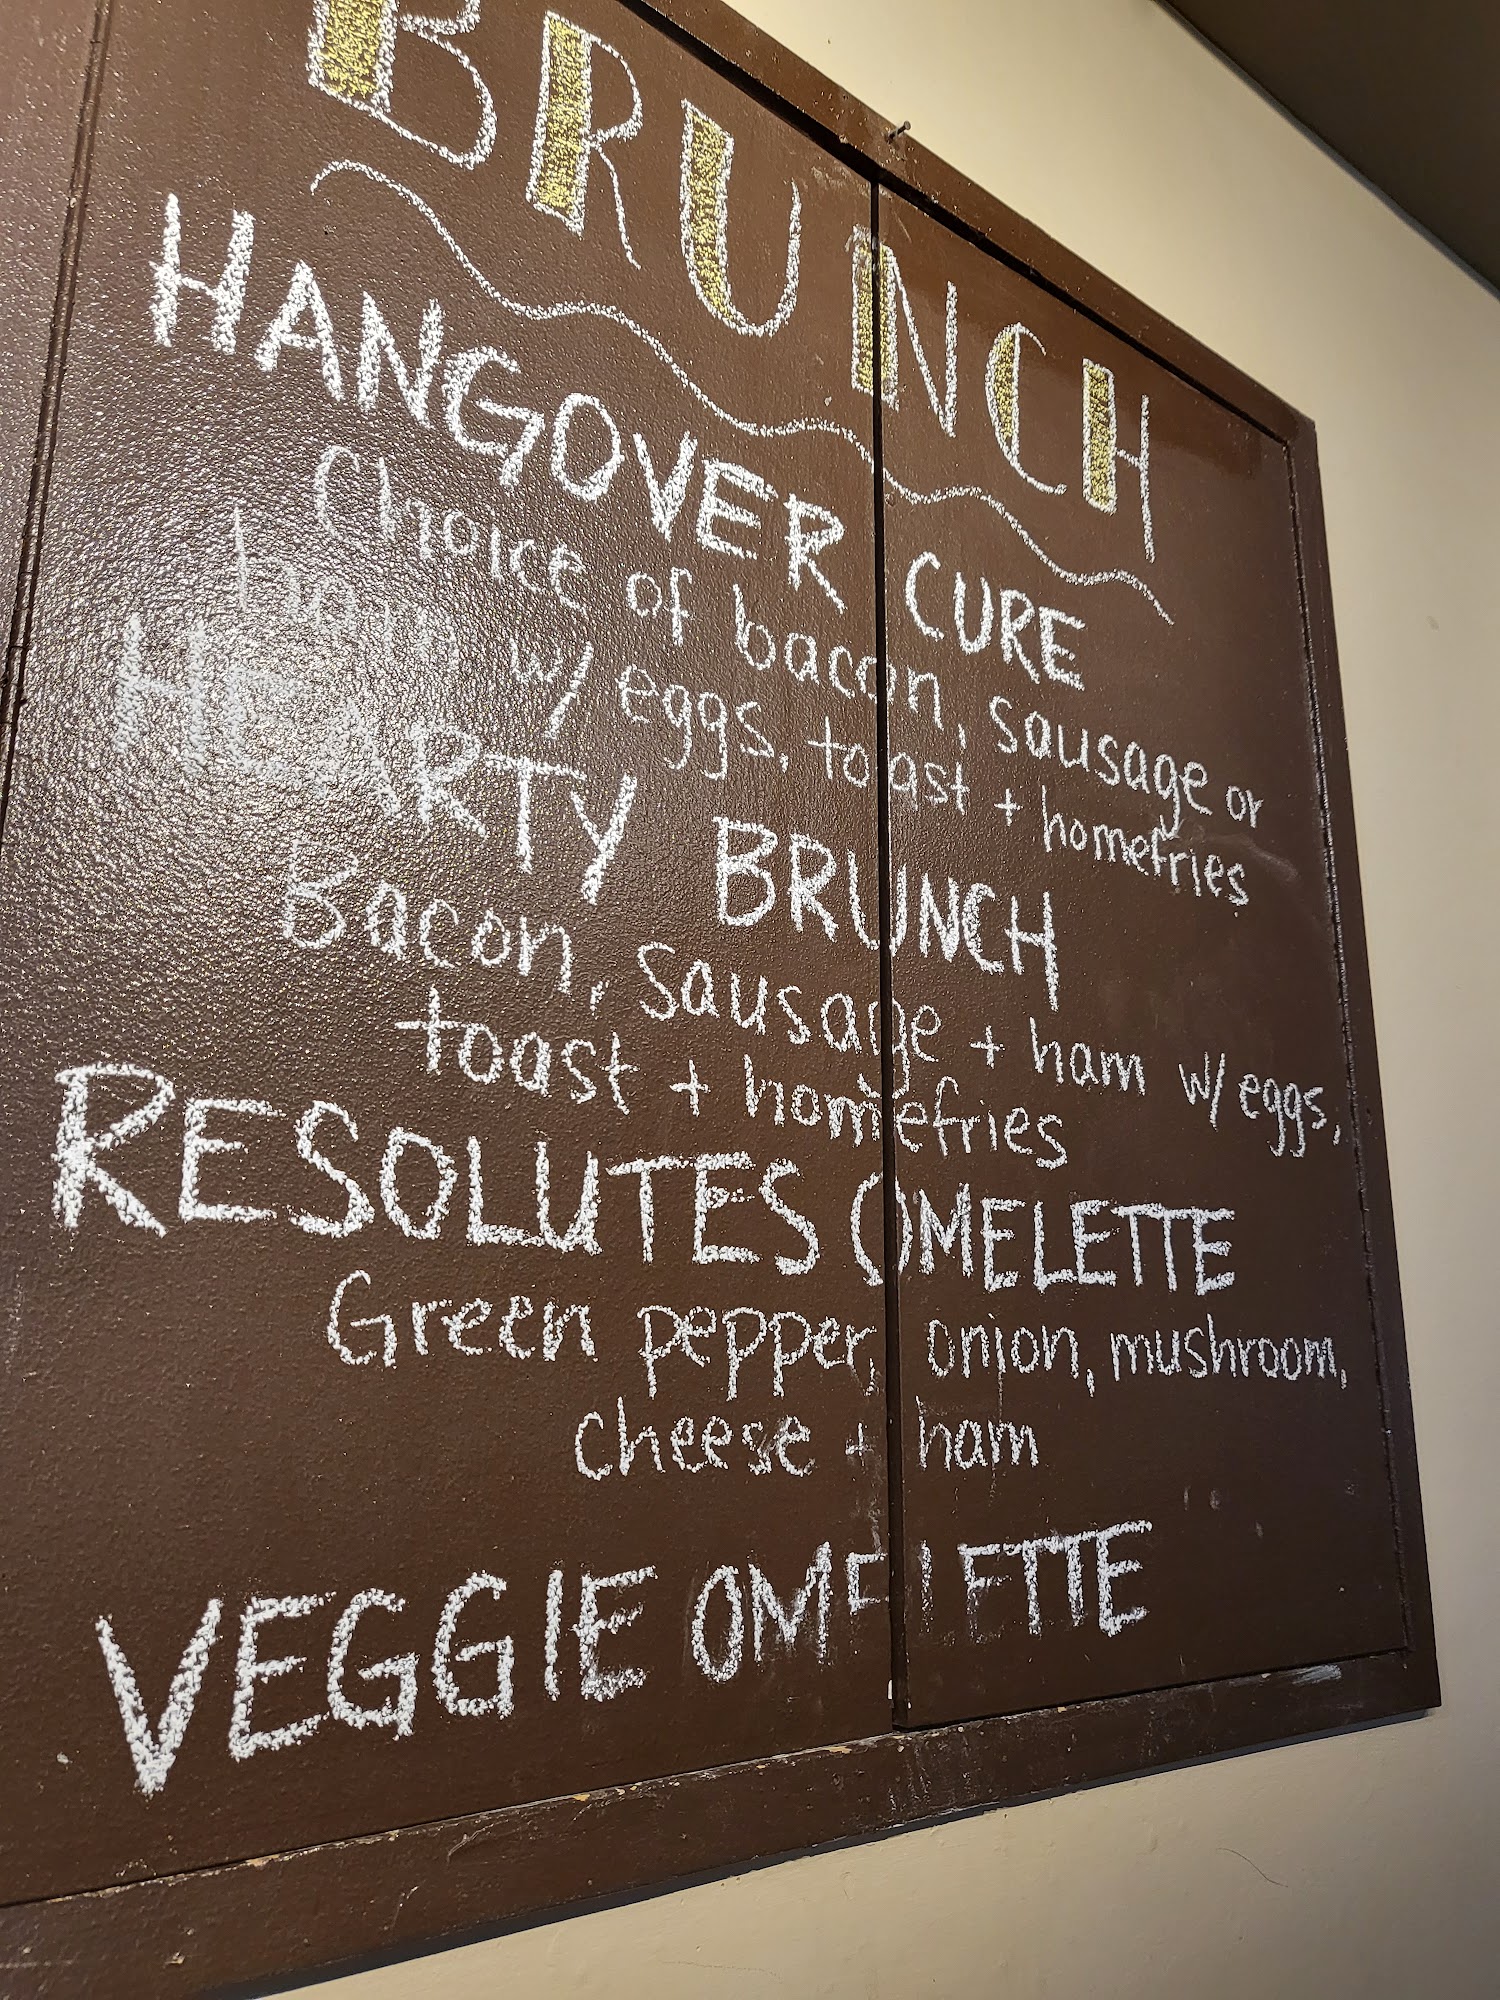 BRUNCH
HANGOVER CURE
Choice of bacon, sausage or
ham w/ eggs, toast + homefries
HEARTY BRUNCH
Bacon, sausage + ham w/ eggs,
toast + homefries
RESOLUTES OMELETTE
Green pepper, onion, mushroom,
cheese + ham
VEGGIE OMELETTE